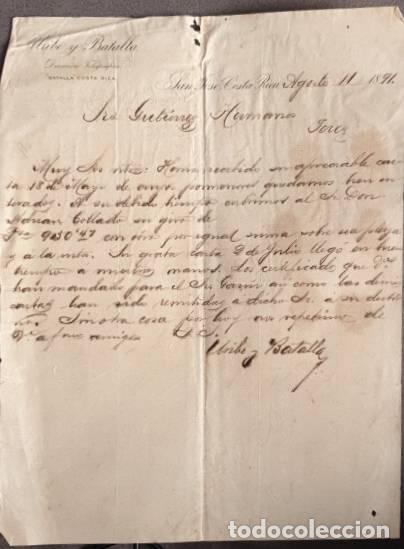 Uribe y Batalla
Dirección Telegráfica
BATALLA COSTA RICA
San José, Costa Rica, Agosto 11 1891.
Sres Gutiérrez Hermanos
Jerez
Muy Srs ntros: Hemos recibido su apreciable car-
ta 18 de Mayo de cuyos pormenores quedamos bien en-
terados. A su debido tiempo cubrimos al Sr Don
Adrian Collado su giro de
9030.47 con otro por igual suma sobre esa plaza
y a la vista. Su grata carta 2 de Julio llegó en buen
tiempo a nuestras manos. Los certificados que Vs.
han mandado para el Sr. así como las demas
cartas han sido remitidas a dicho Sr. a su desti-
no. Sin otra cosa por hoy nos repetimos de
Vs. afmos amigos S. S.
Uribe y Batalla
todocoleccion.net